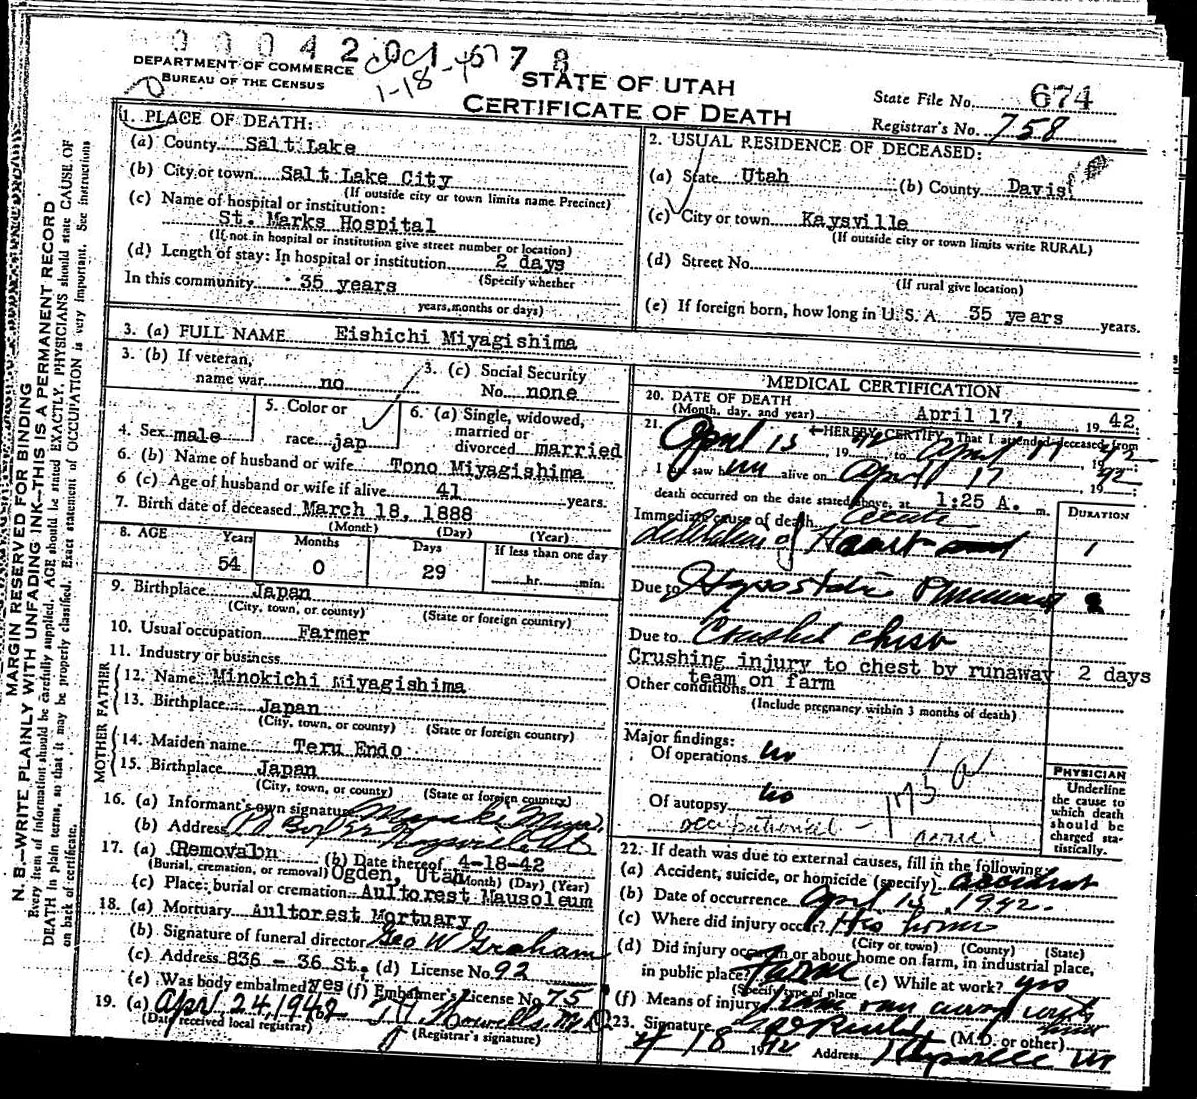 0 0 0 4 2 0 1 6 7 8
DEPARTMENT OF COMMERCE
BUREAU OF THE CENSUS
1-18-4
STATE OF UTAH
CERTIFICATE OF DEATH
State File No. 674
Registrar's No. 758
N. B.—WRITE PLAINLY WITH UNFADING INK—THIS IS A PERMANENT RECORD
MARGIN RESERVED FOR BINDING
Every item of information should be carefully supplied. AGE should be stated EXACTLY. PHYSICIANS should state CAUSE OF
DEATH in plain terms, so that it may be properly classified. Exact statement of OCCUPATION is very important. See instructions
on back of certificate.
1. PLACE OF DEATH:
(a) County Salt Lake
(b) City or town Salt Lake City
(If outside city or town limits name Precinct)
(c) Name of hospital or institution:
St. Marks Hospital
(If not in hospital or institution give street number or location)
(d) Length of stay: In hospital or institution 2 days
(Specify whether
In this community 35 years
years, months or days)
2. USUAL RESIDENCE OF DECEASED:
(a) State Utah (b) County Davis
(c) City or town Kaysville
(If outside city or town limits write RURAL)
(d) Street No.
(If rural give location)
(e) If foreign born, how long in U. S. A. 35 years years.
3. (a) FULL NAME Eishichi Miyagishima
3. (b) If veteran,
name war no
3. (c) Social Security
No. none
4. Sex male
5. Color or
race jap
6. (a) Single, widowed,
married or
divorced married
6. (b) Name of husband or wife Tono Miyagishima
6 (c) Age of husband or wife if alive 41 years.
7. Birth date of deceased March 18, 1888
(Month) (Day) (Year)
8. AGE Years Months Days If less than one day
54 0 29 hr. min.
9. Birthplace Japan
(City, town, or county) (State or foreign country)
10. Usual occupation Farmer
11. Industry or business
FATHER
12. Name Minokichi Miyagishima
13. Birthplace Japan
(City, town, or county) (State or foreign country)
MOTHER
14. Maiden name Teru Endo
15. Birthplace Japan
(City, town, or county) (State or foreign country)
16. (a) Informant's own signature
(b) Address P.O. Box Kaysville Ut
17. (a) (Removal (b) Date thereof 4-18-42
(Burial, cremation, or removal) Ogden, Utah (Month) (Day) (Year)
(c) Place: burial or cremation Aultorest Mausoleum
18. (a) Mortuary Aultorest Mortuary
(b) Signature of funeral director Geo W Graham
(c) Address 836 - 36 St. (d) License No. 92
(e) Was body embalmed yes (f) Embalmer's License No. 75
19. (a) Apr. 24, 1942
(Date received local registrar) (Registrar's signature)
MEDICAL CERTIFICATION
20. DATE OF DEATH
(Month, day, and year) April 17, 1942
21. I HEREBY CERTIFY, That I attended deceased from
April 15, 1942 to April 17 1942
I last saw him alive on April 17 1942
death occurred on the date stated above, at 1:25 A. m.
DURATION
Immediate cause of death Acute
dilitation of Heart 1
Due to Hypostatic
Due to Crushed chest
Crushing injury to chest by runaway 2 days
team on farm
Other conditions
(Include pregnancy within 3 months of death)
Major findings:
Of operations no
Of autopsy no
occupational -
PHYSICIAN
Underline
the cause to
which death
should be
charged sta-
tistically.
22. If death was due to external causes, fill in the following:
(a) Accident, suicide, or homicide (specify) accident
(b) Date of occurrence April 15, 1942.
(c) Where did injury occur? His home
(City or town) (County) (State)
(d) Did injury occur in or about home on farm, in industrial place,
in public place? Farm (e) While at work? yes
(Specify type of place
(f) Means of injury Team ran away with him
23. Signature (M.D. or other)
4/18 1942 Address Kaysville Ut